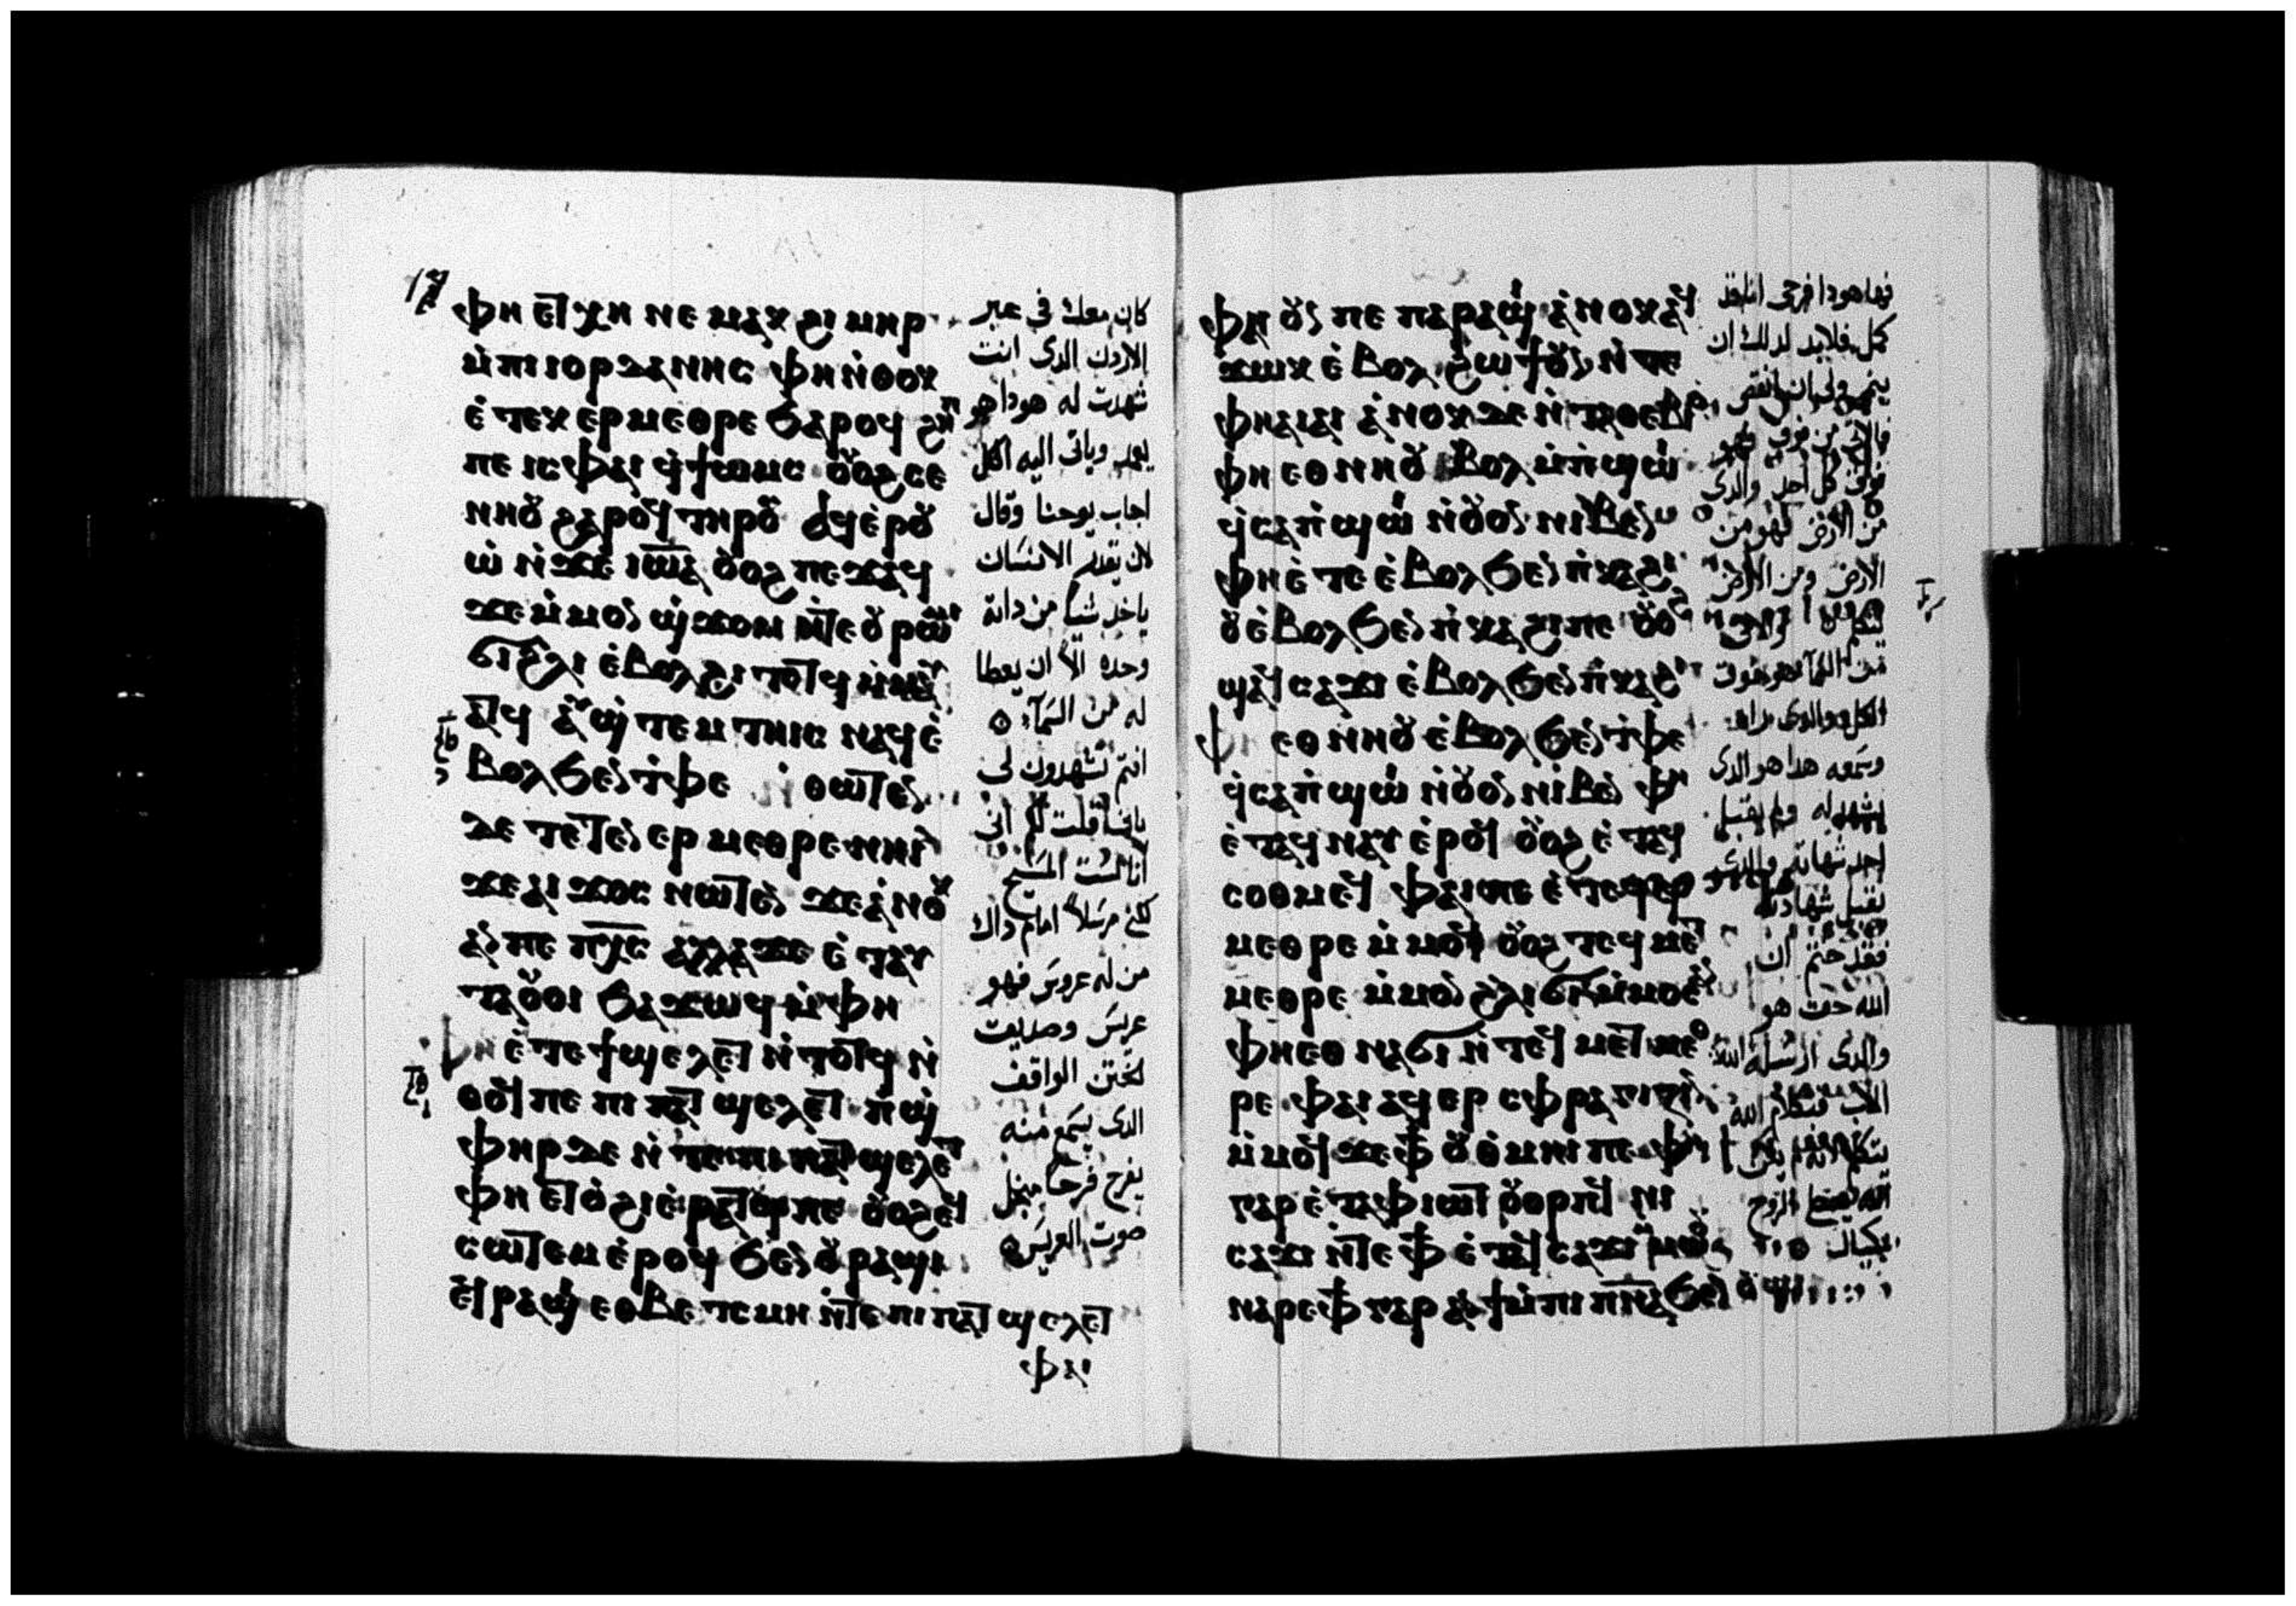 ⲫⲏ ⲉⲧⲭⲏ ⲛⲉⲙⲁⲕ ϩⲓⲙⲏⲣ
ⲙ̀ⲡⲓⲓⲟⲣⲇⲁⲛⲏⲥ ⲫⲏ ⲛ̀ⲑⲟⲕ
ⲉ̀ⲧⲉⲕⲉⲣⲙⲉⲑⲣⲉ ϧⲁⲣⲟϥ ϩⲏ
ⲡⲉ ⲓⲥ ⲫⲁⲓ ϥ̀ϯⲱⲙⲥ ⲟⲩⲟϩ ⲥⲉ
ⲛⲏⲟⲩ ϩⲁⲣⲟϥ ⲧⲏⲣⲟⲩ ⲁϥⲉ̀ⲣⲟⲩ
ⲱ̀ ⲛ̀ϫⲉ ⲓⲱ̅ⲁ̅ ⲟⲩⲟϩ ⲡⲉϫⲁϥ
ϫⲉ ⲙ̀ⲙⲟⲛ ϣ̀ϫⲟⲙ ⲛ̀ⲧⲉ ⲟⲩⲣⲱⲙⲓ
ϭⲓ ϩⲗⲓ ⲉ̀ⲃⲟⲗ ϩⲓⲧⲟⲧϥ ⲙ̀ⲙⲁⲩ
ⲁⲧϥ ⲁⲩϣ̀ⲧⲉⲙⲧⲏⲓⲥ ⲛⲁϥ ⲉ̀
ⲃⲟⲗϧⲉⲛ ⲧ̀ⲫⲉ ⲛ̀ⲑⲱⲧⲉⲛ
ⲇⲉ ⲧⲉⲧⲉⲛⲉⲣⲙⲉⲑⲣⲉ ⲛⲏⲓ
ϫⲉ ⲁⲓϫⲟⲥ ⲛⲱⲧⲉⲛ ϫⲉ ⲁ̀ⲛⲟⲕ
ⲁⲛ ⲡⲉ ⲡⲭ̅ⲥ̅ ⲁⲗⲗⲁ ϫⲉ ⲉ̀ⲧⲁⲩ
ⲧⲁⲟⲩⲟⲓ ϧⲁϫⲱϥ ⲙ̀ⲫⲏ
ⲫⲏ ⲉ̀ⲧⲉ ϯϣⲉⲗⲉⲧ ⲛ̀ⲧⲟⲧϥ ⲛ̀
ⲑⲟϥ ⲡⲉ ⲡⲓⲡⲁⲧϣⲉⲗⲉⲧ ⲡ̀ϣ̀
ⲫⲏⲣ ⲇⲉ ⲛ̀ⲧⲉ ⲡⲓⲡⲁⲧϣⲉⲗⲉⲧ
ⲫⲏ ⲉⲧⲟ̀ϩⲓ ⲉ̀ⲣⲁⲧϥ ⲡⲉ ⲟⲩⲟϩ ⲉⲧ
ⲥⲱⲧⲉⲙ ⲉ̀ⲣⲟϥ ϧⲉⲛ ⲟⲩⲣⲁϣⲓ
ⲉϥⲣⲁϣⲓ ⲉⲑⲃⲉ ⲧⲥⲙⲏ ⲛ̀ⲧⲉ ⲡⲓⲡⲁⲧϣⲉⲗⲉⲧ
ⲫⲁⲓ
كان معك فى عبر
الاردن الدى انت
شهدت له هوداهو
يعمد وياتى اليه الكل
اجاب يوحنا وقال
لا يقدر الانسان
ياخد شيا من داته
وحده الا ان يعطا
له من السمآء
انتم تشهدون لى
بانى قلت لكم انى
انا لست المسيح
لكنى مرسلا امام داك
من له عروس فهو
عريس وصديق
الختن الواقف
الدى يسمع منه
يفرح فرحا من اجل
صوت العريس
ⲫⲁⲓ ⲟⲩⲛ ⲡⲉ ⲡⲁⲣⲁϣⲓ ⲁ̀ⲛⲟⲕ ⲁϥ
ϫⲱⲕ ⲉ̀ⲃⲟⲗ ϩⲱϯ ⲟⲩⲛ ⲛ̀ⲧⲉ
ⲫⲏ ⲁⲓⲁⲓ ⲁ̀ⲛⲟⲕ ⲇⲉ ⲛ̀ⲧⲁⲑⲉⲃⲓⲟ
ⲫⲏ ⲉⲑⲛⲏⲟⲩ ⲉⲃⲟⲗ ⲙ̀ⲡ̀ϣⲱⲓ
ϥ̀ⲥⲁⲡ̀ϣⲱⲓ ⲛ̀ⲟⲩⲟⲛ ⲛⲓⲃⲉⲛ
ⲫⲏ ⲉ̀ⲧⲉ ⲉ̀ⲃⲟⲗϧⲉⲛ ⲡ̀ⲕⲁϩⲓ
ⲟⲩ ⲉ̀ⲃⲟⲗϧⲉⲛ ⲡ̀ⲕⲁϩⲓ ⲡⲉ ⲟⲩⲟϩ
ϣⲁϥⲥⲁϫⲓ ⲉ̀ⲃⲟⲗϧⲉⲛ ⲡ̀ⲕⲁϩⲓ
ⲫⲏ ⲉⲑⲛⲏⲟⲩ ⲉ̀ⲃⲟⲗϧⲉⲛ ⲧ̀ⲫⲉ
ϥ̀ⲥⲁⲡ̀ϣⲱⲓ ⲛ̀ⲟⲩⲟⲛ ⲛⲓⲃⲉⲛ ⲫⲏ
ⲉ̀ⲧⲁϥⲛⲁⲩ ⲉ̀ⲣⲟϥ ⲟⲩⲟϩ ⲉ̀ⲧⲁϥ
ⲥⲟⲑⲙⲉϥ ⲫⲁⲓ ⲡⲉ ⲉ̀ⲧⲉϥⲉⲣ
ⲙⲉⲑⲣⲉ ⲙ̀ⲙⲟϥ ⲟⲩⲟϩ ⲧⲉϥⲙⲉⲧ
ⲙⲉⲑⲣⲉ ⲙ̀ⲙⲟⲛ ϩⲗⲓ ϭⲓ ⲙ̀ⲙⲟⲥ
ⲫⲏ ⲉⲑⲛⲁϭⲓ ⲛ̀ⲧⲉϥⲙⲉⲧⲙⲉⲑ
ⲣⲉ ⲫⲁⲓ ⲁϥⲉⲣⲥⲫⲣⲁⲅⲓⲍⲓⲛ
ⲙ̀ⲙⲟϥ ϫⲉ ⲫϯ ⲟⲩⲑ̀ⲙⲏⲓ ⲡⲉ ⲫⲏ
ⲅⲁⲣ ⲉ̀ⲧⲁ ⲫⲓⲱⲧ ⲟⲩⲟⲣⲡϥ ⲛⲓ
ⲥⲁϫⲓ ⲛ̀ⲧⲉ ⲫϯ ⲉ̀ⲧⲁϥⲥⲁϫⲓ ⲙ̀ⲙⲱⲟⲩ
ⲛⲁⲣⲉ ⲫϯ ⲅⲁⲣ ⲁϥϯ ⲙ̀ⲡⲓⲡⲛ̅ⲁ̅ ϧⲉⲛ ⲟⲩϣⲓ
فها هودا فرحى انا قد
كمل فلابد لدلك ان
ينمى ولى ان انقص
فالاتى من فوق فهو
فوق كل احد والدى
من الارض فهو من
الارض ومن الارض
يتكلم والاتى
من السمآ هو فوق
الكل والدى راه
وسمعه هدا هو الدى
يشهد له ولم يقبل
احد شهادته والدى
يقبل شهادته
فقد ختم ان
الله حق هو
والدى ارسله الله
الاب فبكلام الله
يتكلم لانه لم يكن
الله يعطى الروح
بكيال